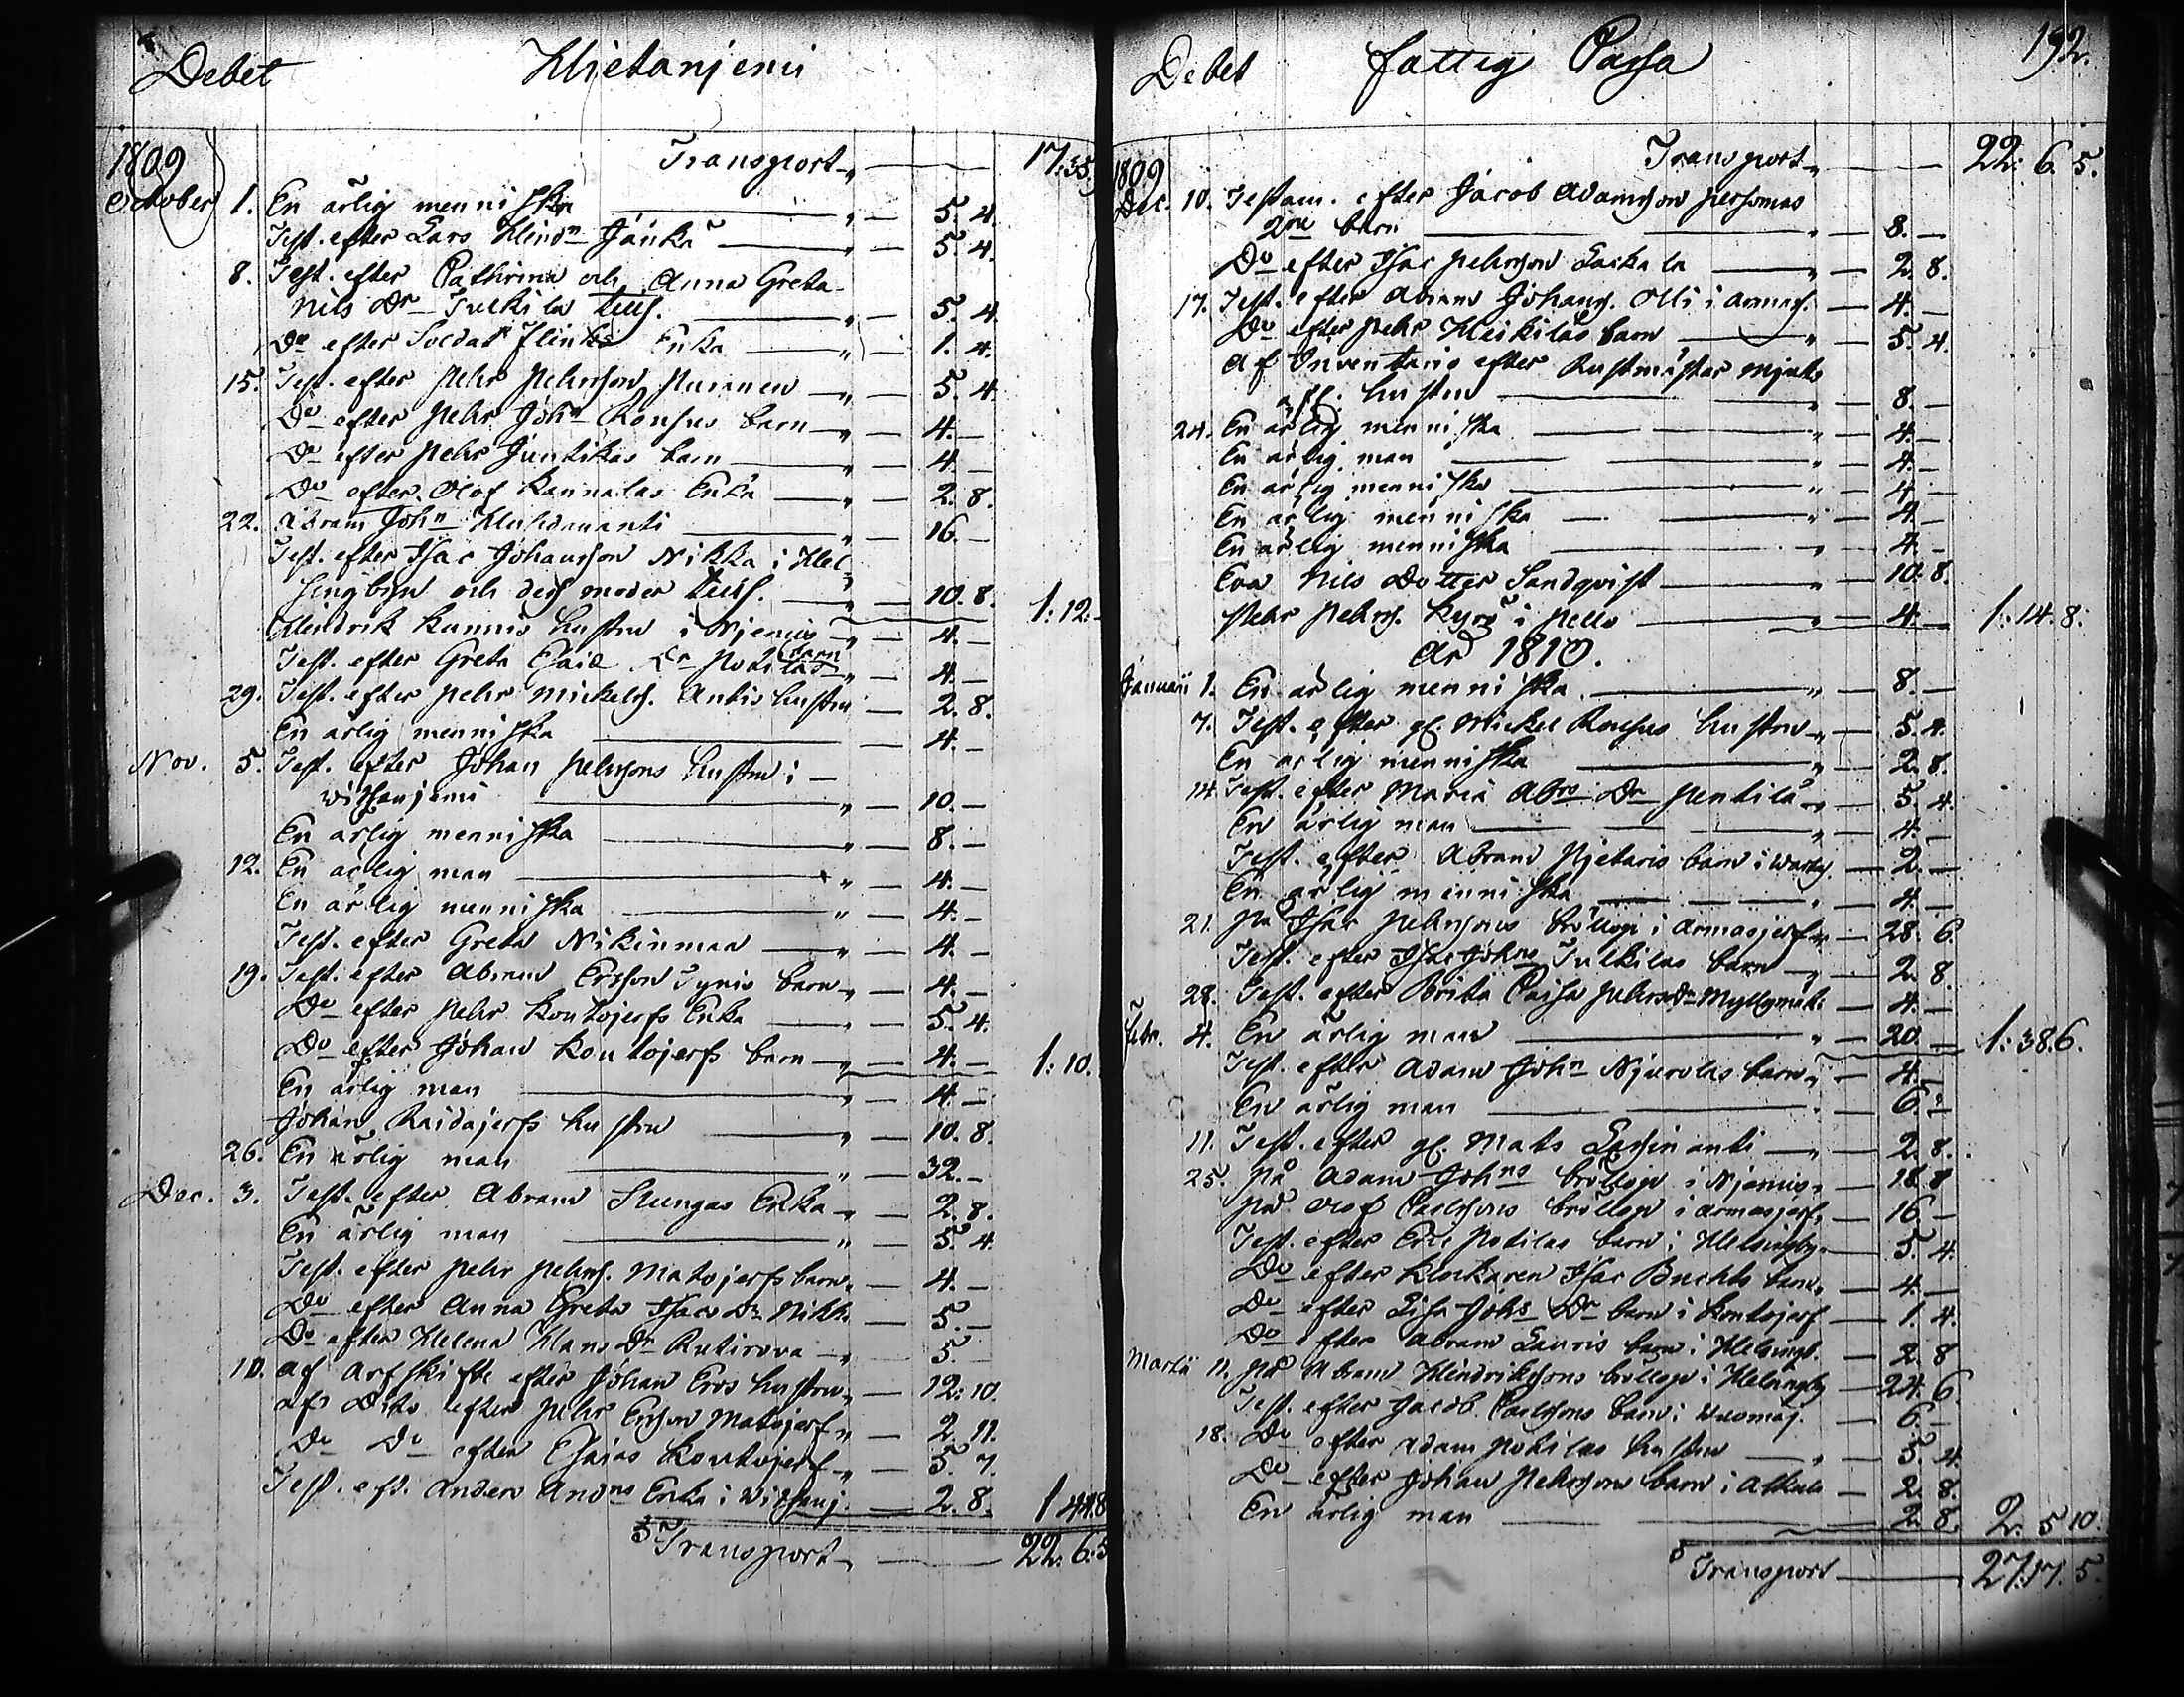 Debet Hjetanjemi
1809 Transport 17:35.
October 1. En ärlig menniska 5. 4.
Test. efter Lars Hindn Jänkä 5. 4.
8. Test. efter Cathrina och Anna Greta
Nils Dr Tulkila tills. 5. 4.
Do efter Soldat Flinks Enka 1. 4.
15. Test. efter Pehr Pehrsson 5. 4
Do efter Pehr John Rousus barn 4. —
Do efter Pehr Juntikas barn 4. —
Do efter Olof Kannalas Enka 2. 8.
22. Abram John 16. —
Test. efter Isac Johansson Nikka i Hel-
singbyn och dess moder tills. 10. 8. 1: 12. –
Hindrik Kunnis hustru i Njemis 4. —
Test. efter Greta Esaiæ Dr Potilas barn 4. —
29. Test. efter Pehr Mickels. Antis hustru 2. 8.
En ärlig menniska 4. —
Nov. 5. Test. efter Johan Pehrssons hustru i
Witsanjemi 10. —
En ärlig menniska 8. —
12. En ärlig man 4. —
En ärlig menniska 4. —
Test. efter Greta Nikinmaa 4. —
19. Test. efter Abram Ersson Tynis barn 4. —
Do efter Pehr Kontojerfs Enka 5. 4.
Do efter Johan Kontojerfs barn 4. — 1: 10.
En ärlig man 4. —
Johan Raidajerfs hustru 10. 8.
26. En ärlig man 32. —
Dec. 3. Test. efter Abram Stengas Enka 2. 8.
En ärlig man 5. 4.
Test. efter Pehr Pehrs. Matojerfs barn 4. —
Do efter Anna Greta Isacs Dr Nikka 5. —
Do efter Helena Hans Dr Rutirova 5. —
10. af Arfskifte efter Johan Ers hustru 12: 10.
af Dito efter Pehr Ersson Matojerf 2. 11.
Do Do efter Esaias Kontojerf 5. 7.
Test. eft. Anders Andns Enka i Witsanj. 2. 8. 1 44 8
Transport 22. 6. 5
Debet fattig Cassa 192.
1809 Transport 22. 6. 5.
Dec. 10. Testam. efter Jacob Adamsson
2ne barn 8. —
Do efter Isac Pehrsson Laikala 2. 8.
17. Test. efter Abram Johans. Olli i Armasj. 4. —
Do efter Pehr Heikilas barn 5. 4.
af Inventario efter Rustmästar
afl. hustru 8. —
24. En ärlig menniska 4. —
En ärlig man 4. —
En ärlig menniska 4. —
En ärlig menniska 4. —
En ärlig menniska 4. —
Eva Nils Dotter Sandqvist 10. 8.
Pehr Pehrs. Kyrö i Pello 4. — 1: 14. 8.
År 1810.
Januarii 1. En ärlig menniska 8. —
7. Test. efter gl. Mickel Rousus hustru 5. 4.
En ärlig menniska 2. 8.
14. Test. efter Maria Abrs Dr Pentilä 5. 4.
En ärlig man 4. —
Test. efter Abram barn i 2. —
En ärlig menniska 4. —
21. På Isac Pehrssons bröllop i Armasjerf 28. 6.
Test. efter Isac Johns Tulkilas barn 2. 8.
28. Test. efter Brita Caisa Pehrs Dr Myllymäki 4. —
Febr. 4. En ärlig man 20. — 1: 38. 6.
Test. efter Adam John barn 4. —
En ärlig man 6. —
11. Test. efter gl. Mats 2. 8.
25. På Adam Johns bröllop i Njemis 18 8
På Olof Carlssons bröllop i Armasjerf 16. —
Test. efter Eric Potilas barn i Helsingby 5. 4.
Do efter Klockaren Isac Buchts barn 4. —
Do efter Lisa Johs Dr barn i Kontojerf 1. 4.
Do efter Abram Lauris barn i Helsingb. 2. 8
Martii 11. På Abram Hindrikssons bröllop i Helsingby 24. 6
Test. efter Jacob Carlssons barn i 6. —
18. Do efter Adam Potilas hustru 5. 4.
Do efter Johan Pehrsson barn i Alkula 2. 8.
En ärlig man 2. 8. 2. 5 10.
Transport 27. 17. 5.